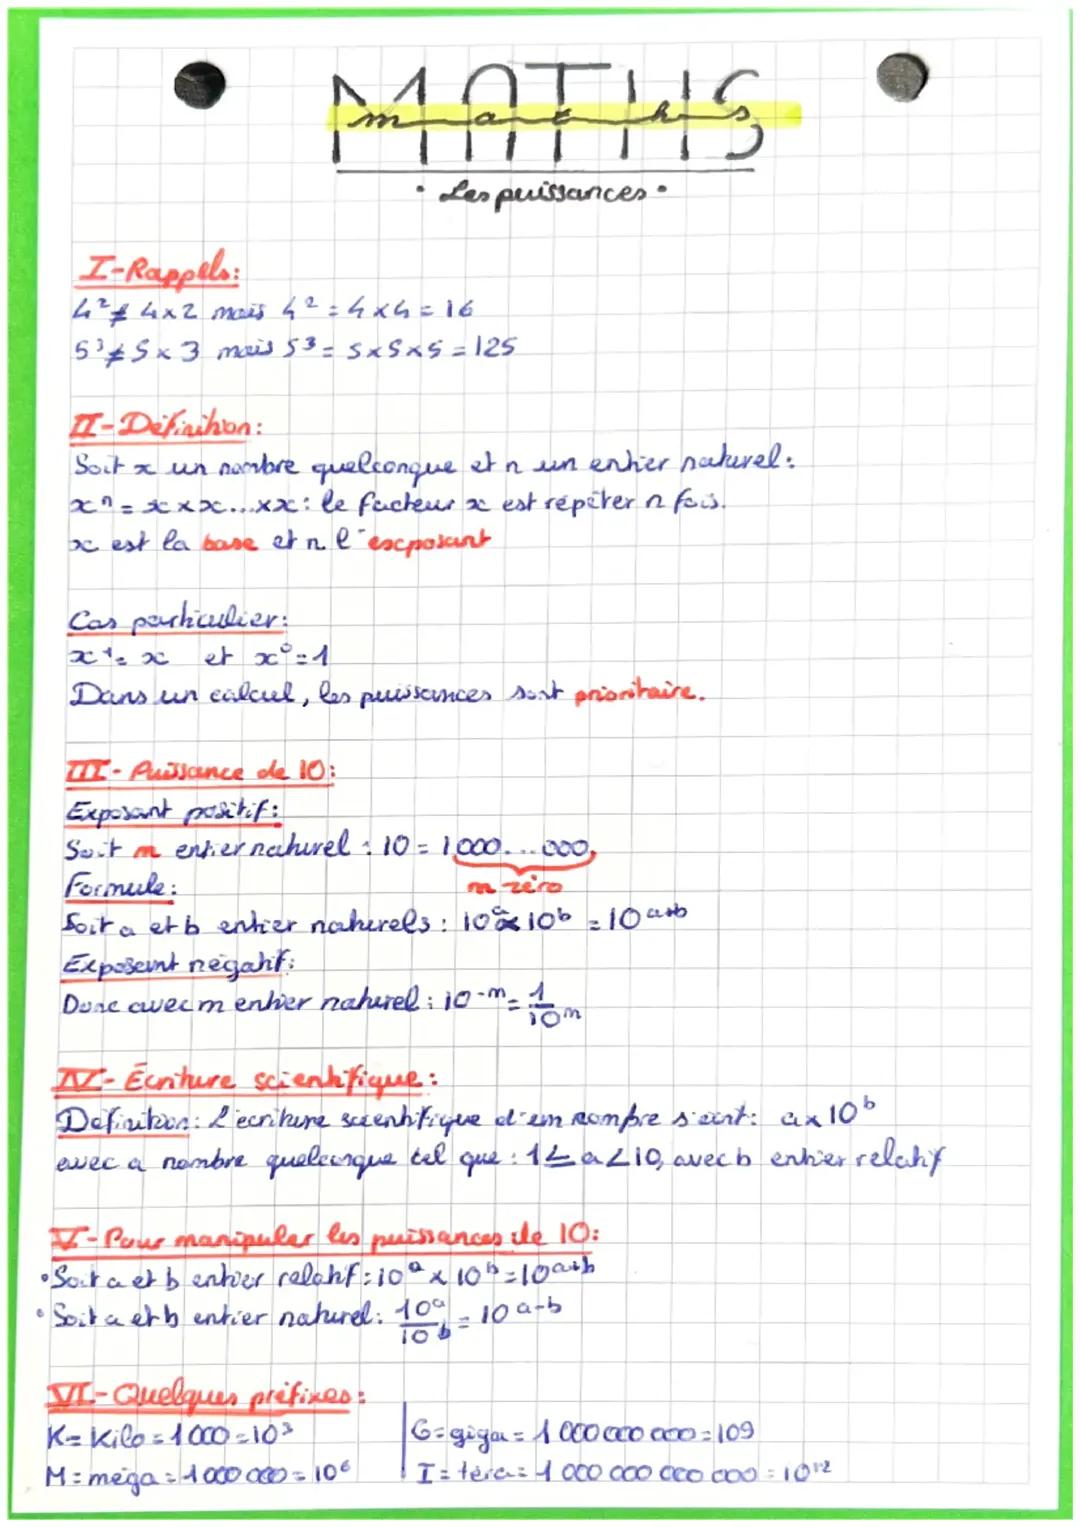 MATHS
maths
• Les puissances •
I-Rappels:
4² ≠ 4x2 mais 4² = 4x4 = 16
5³ ≠ 5x3 mais 5³ = 5x5x5 = 125
II-Définition:
Soit x un nombre quelconque et n un entier naturel:
xⁿ = x x x...x x: le facteur x est répéter n fois.
x est la base et n l'exposant
Cas particulier:
x¹ = x et x⁰ = 1
Dans un calcul, les puissances sont prioritaire.
III- Puissance de 10:
Exposant positif:
Soit m entier naturel : 10 = 1 000...000,
Formule:
m zéro
Soit a et b entier naturels : 10ᵃ x 10ᵇ = 10ᵃ⁺ᵇ
Exposant négatif:
Donc avec m entier naturel : 10⁻ᵐ = 1/10ᵐ
IV- Écriture scientifique :
Définition: L'ecriture scientifique d'un nombre s'ecrit: a x 10ᵇ
avec a nombre quelconque tel que : 1 ≤ a < 10, avec b entier relatif
V- Pour manipuler les puissances de 10:
• Soit a et b entier relatif : 10ᵃ x 10ᵇ = 10ᵃ⁺ᵇ
• Soit a et b entier naturel: 10ᵃ/10ᵇ = 10ᵃ⁻ᵇ
VI- Quelques préfixes:
K = Kilo = 1 000 = 10³
M = méga = 1 000 000 = 10⁶
G = giga = 1 000 000 000 = 109
T = téra = 1 000 000 000 000 = 10¹²